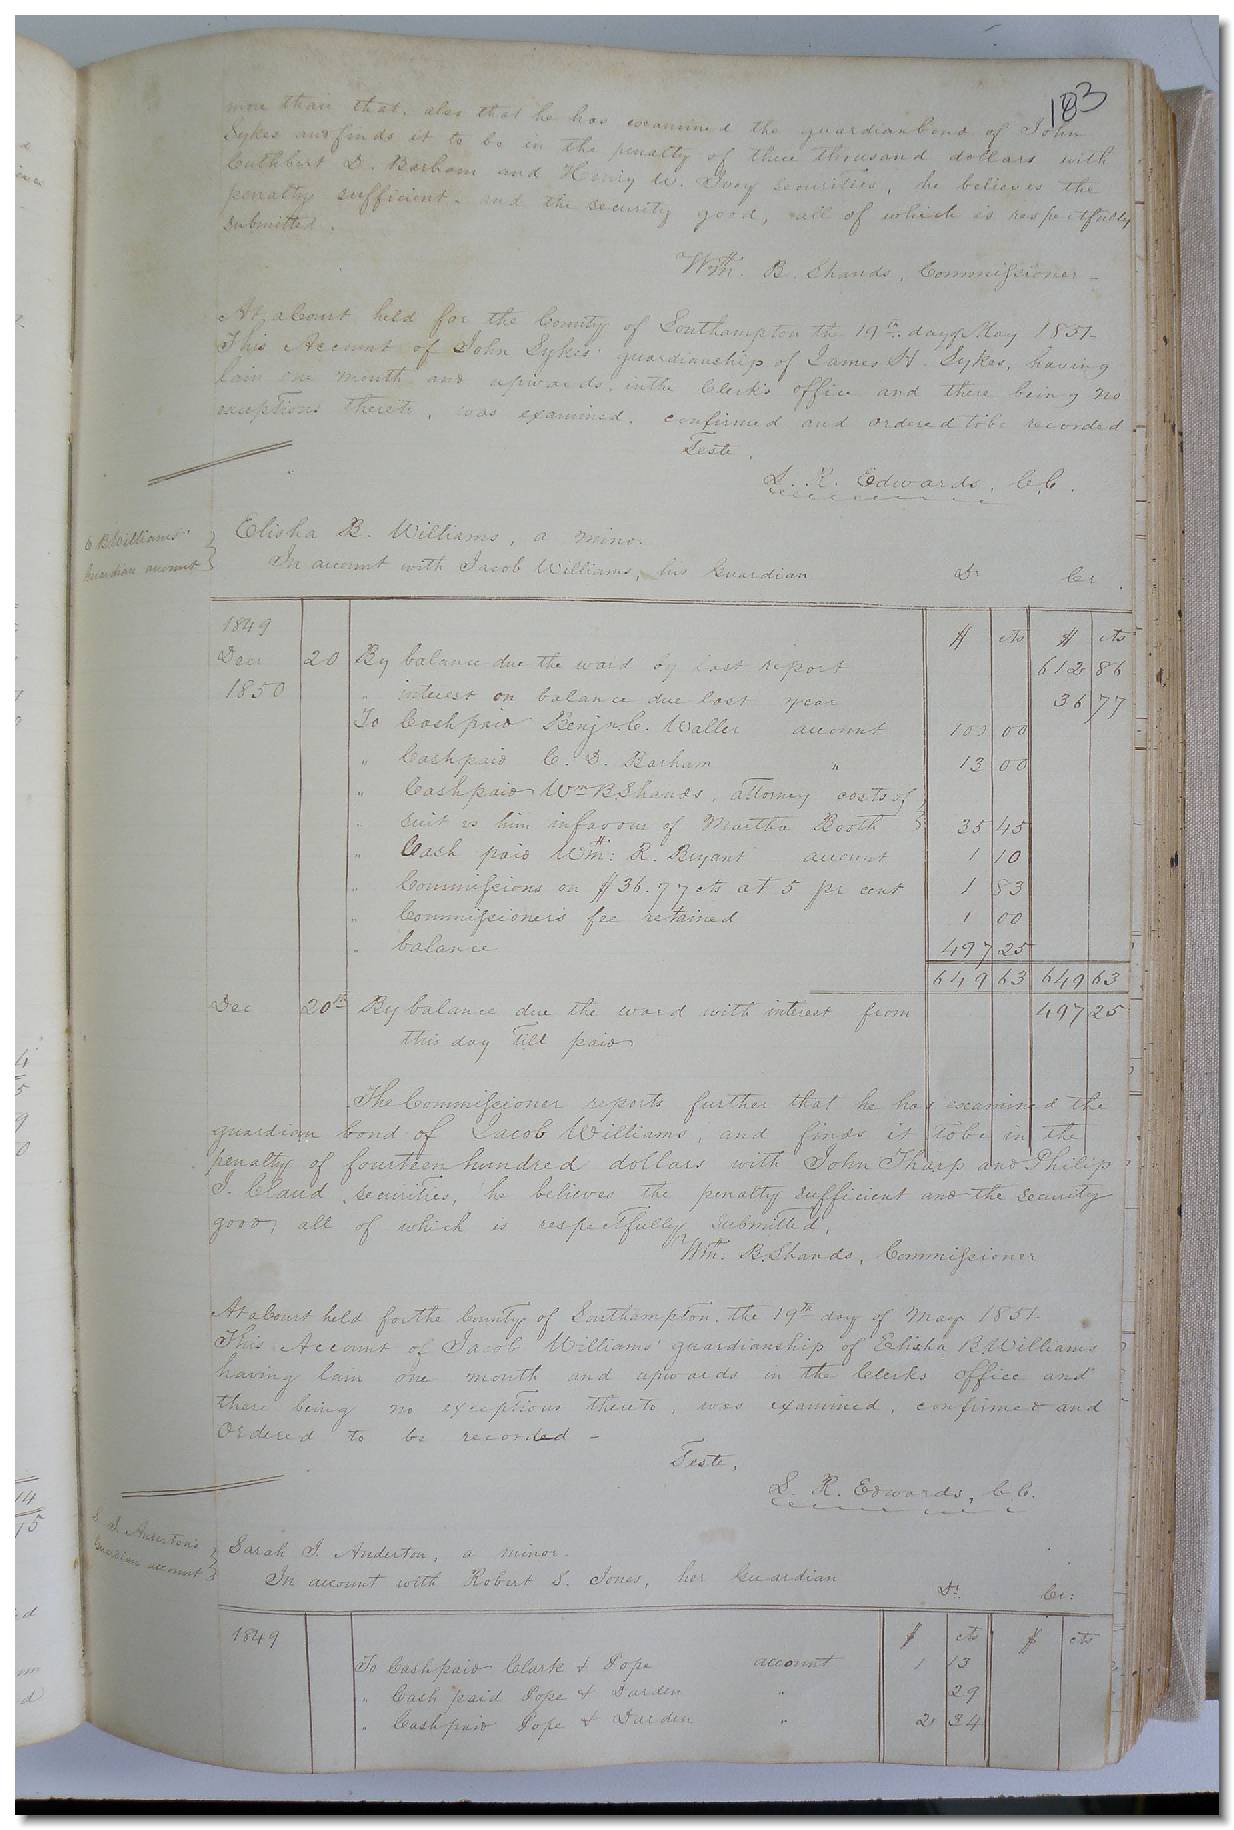 183
more than that. also that he has examined the guardian bond of John
Sykes and finds it to be in the penalty of three thousand dollars with
Cuthbert D. Barham and Henry W. Ivey securities, he believes the
penalty sufficient. and the security good, all of which is respectfully
submitted.
Wm. B. Shands, Commissioner -
At a Court held for the County of Southampton the 19th. day of May 1851-
This Account of John Sykes' guardianship of James H. Sykes, having
lain one month and upwards. in the Clerk's office and there being no
exceptions thereto, was examined. confirmed and ordered to be recorded
Teste.
L. R. Edwards, C.C.
E B Williams'
Guardian account
Elisha B. Williams, a minor
In account with Jacob Williams, his Guardian Dr Cr.
1849 $ cts $ cts
Dec 20 By balance due the ward by last report 612 86
1850 " interest on balance due last year 36 77
To Cash paid Benjn. C. Waller account 100 00
" Cash paid C. D. Barham " 13 00
" Cash paid Wm B Shands, attorney costs of
" suit vs him in favour of Martha Booth 35 45
" Cash paid Wm: R. Bryant account 1 10
" Commissions on $36.77 cts at 5 pr cent 1 83
" Commissioner's fee retained 1 00
" balance 497 25
649 63 649 63
Dec 20th By balance due the ward with interest from 497 25
this day till paid
The Commissioner reports further that he has examined the
guardian bond of Jacob Williams, and finds it to be in the
penalty of fourteen hundred dollars with John Tharp and Philip
J. Claud securities, he believes the penalty sufficient and the security
good; all of which is respectfully submitted.
Wm. B. Shands, Commissioner
At a Court held for the County of Southampton, the 19th day of May 1851-
This Account of Jacob Williams' guardianship of Elisha B. Williams
having lain one month and upwards in the Clerks office and
there being no exceptions thereto, was examined, confirmed and
Ordered to be recorded -
Teste,
L. R. Edwards, C C.
S. J. Anderton's
Guardian account
Sarah J. Anderton, a minor.
In account with Robert S. Jones, her Guardian Dr. Cr:
1849 $ cts $ cts
To Cash paid Clark & Pope account 1 13
" Cash paid Pope & Darden " 29
" Cash paid Pope & Darden " 2 34